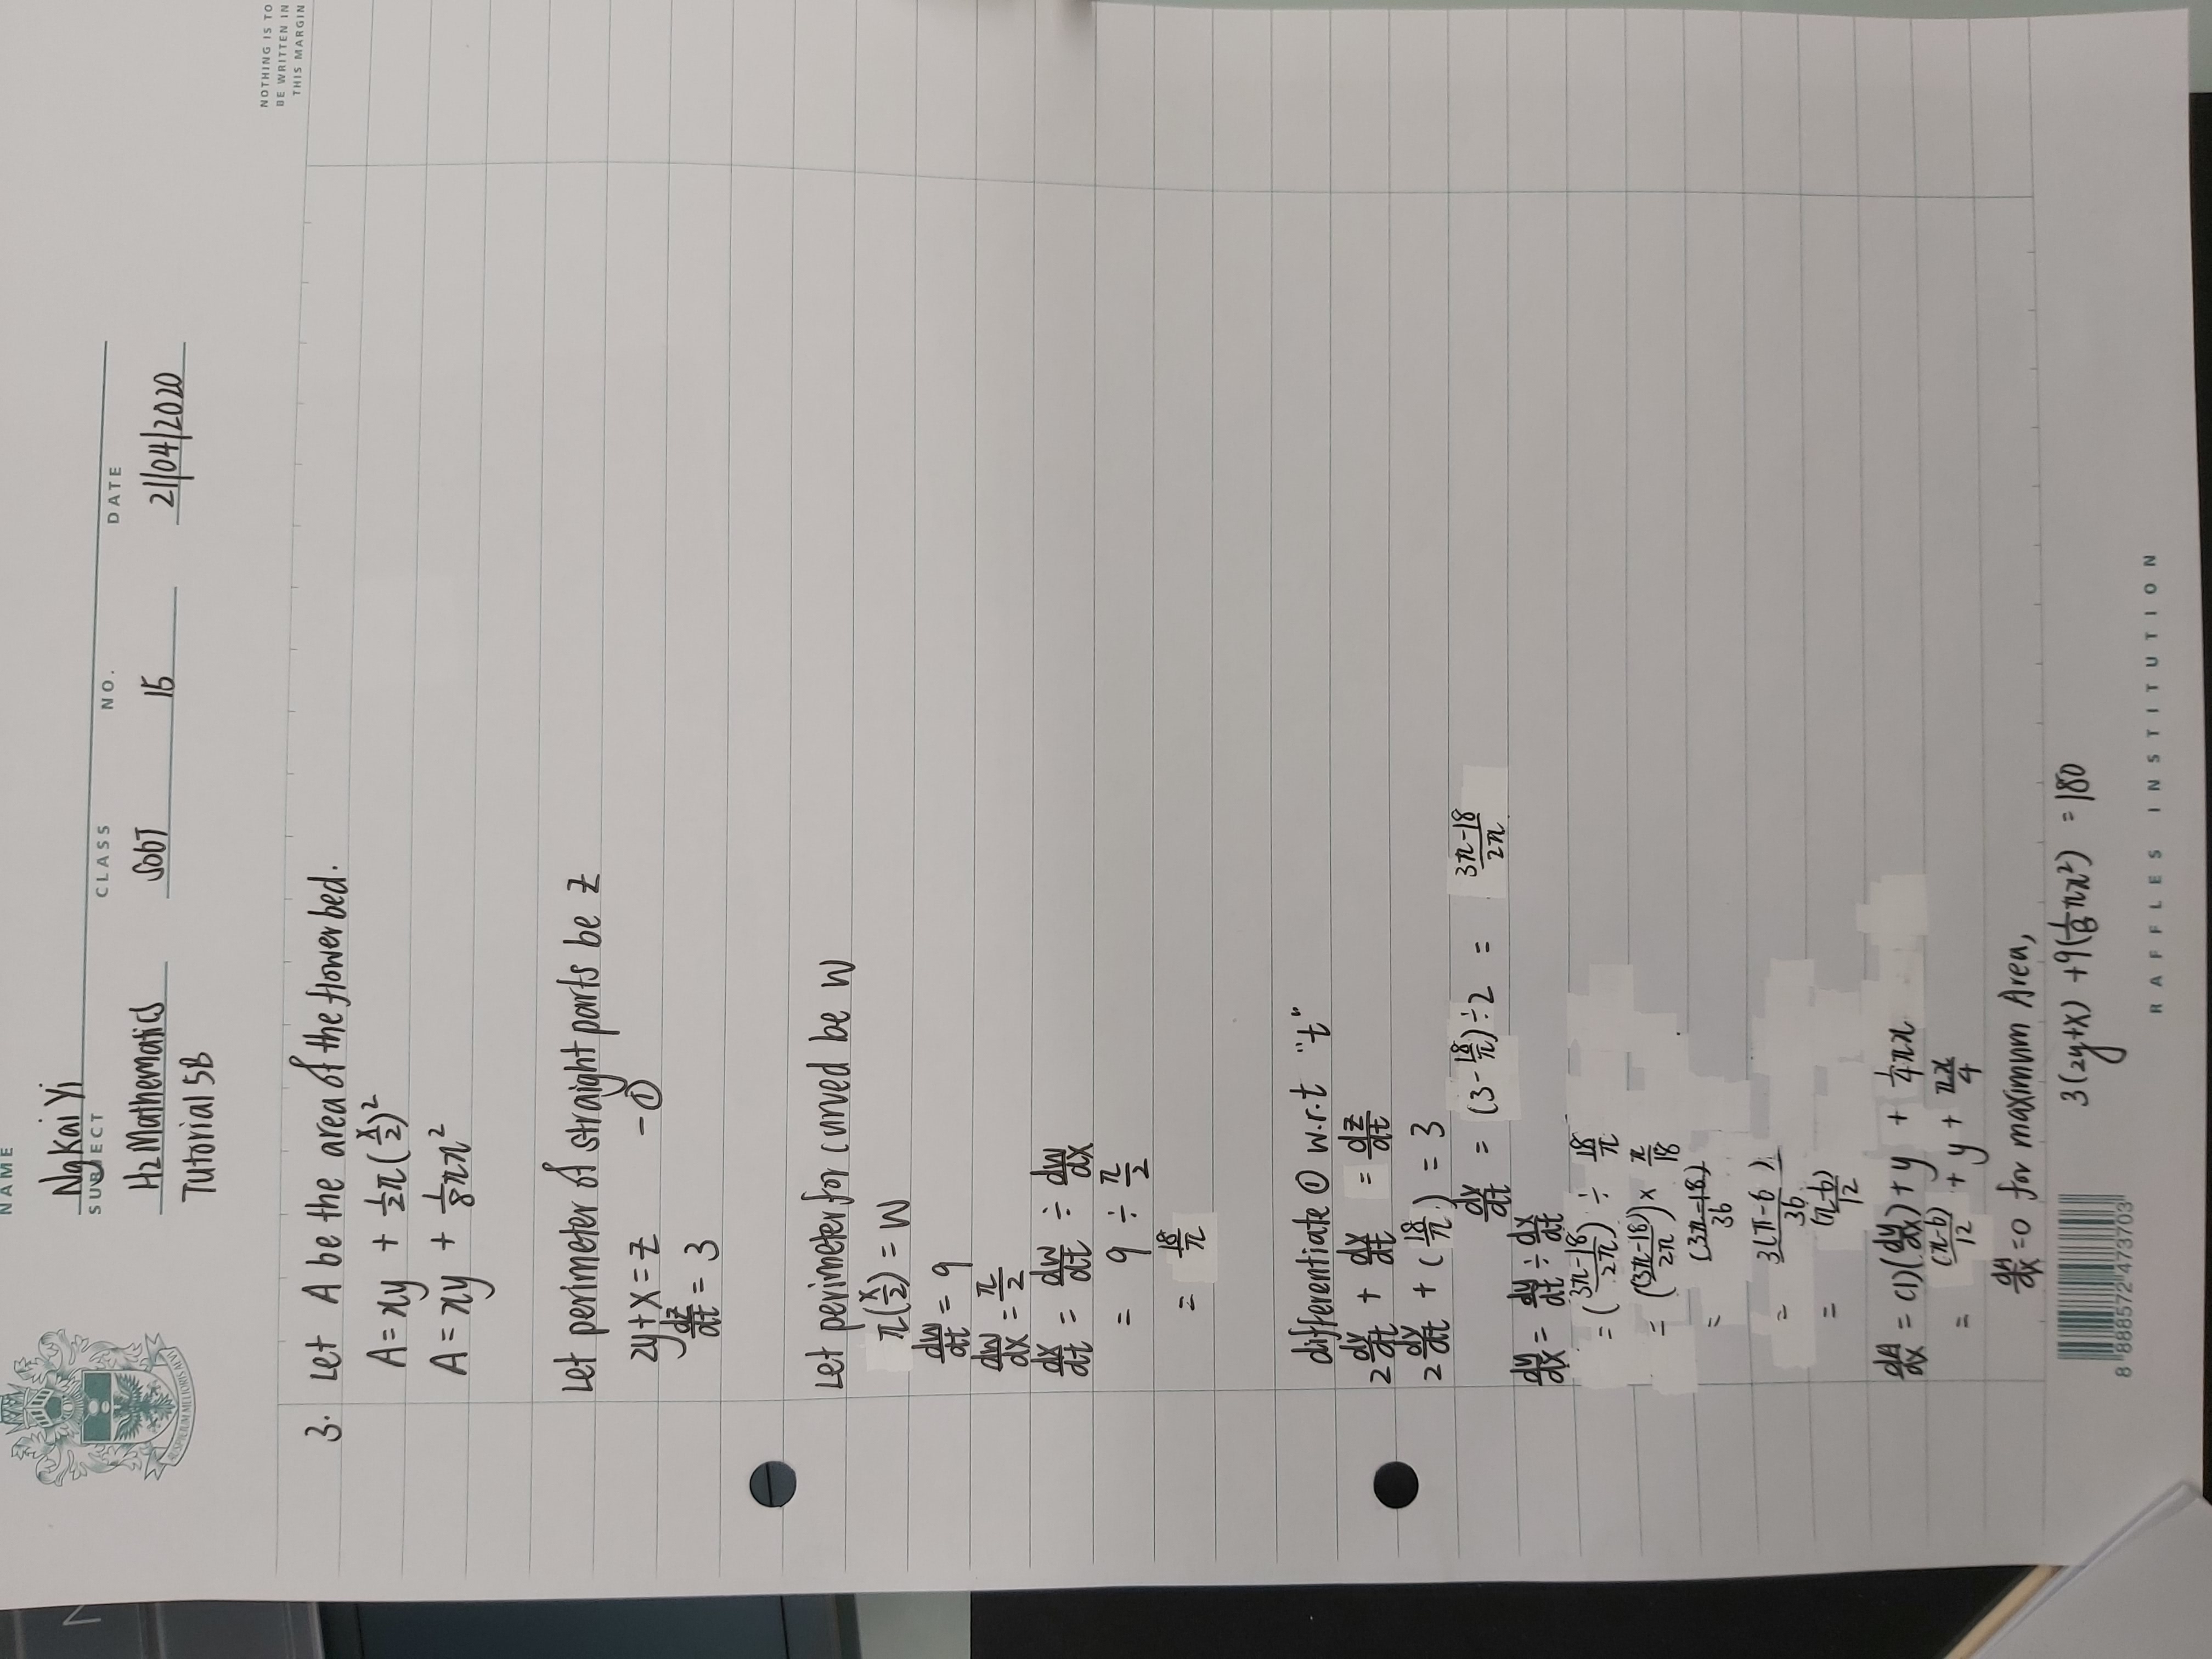 NAME
Ng Kai Yi
SUBJECT CLASS NO. DATE
H2 Mathematics S06T 15 21/04/2020
Tutorial 5B
NOTHING IS TO
BE WRITTEN IN
THIS MARGIN
3. Let A be the area of the flower bed.
A = xy + 1/2 π(x/2)²
A = xy + 1/8 πx²
Let perimeter of straight parts be z
2y + x = z - ①
dz/dt = 3
Let perimeter for curved be W
π(x/2) = W
dw/dt = 9
dw/dx = π/2
dx/dt = dw/dt ÷ dw/dx
= 9 ÷ π/2
= 18/π
differentiate ① w.r.t "t"
2 dy/dt + dx/dt = dz/dt
2 dy/dt + (18/π) = 3
dy/dt = (3 - 18/π) ÷ 2 = 3π-18/2π
dy/dx = dy/dt ÷ dx/dt
= (3π-18/2π) ÷ 18/π
= ((3π-18)/2π) × π/18
= (3π-18)/36
= 3(π-6)/36
= (π-6)/12
dA/dx = (1)(dy/dx) + y + 1/4 πx
= (π-6)/12 + y + πx/4
dA/dx = 0 for maximum Area,
3(2y+x) + 9(1/8 πx²) = 180
8 888572 473703
RAFFLES INSTITUTION